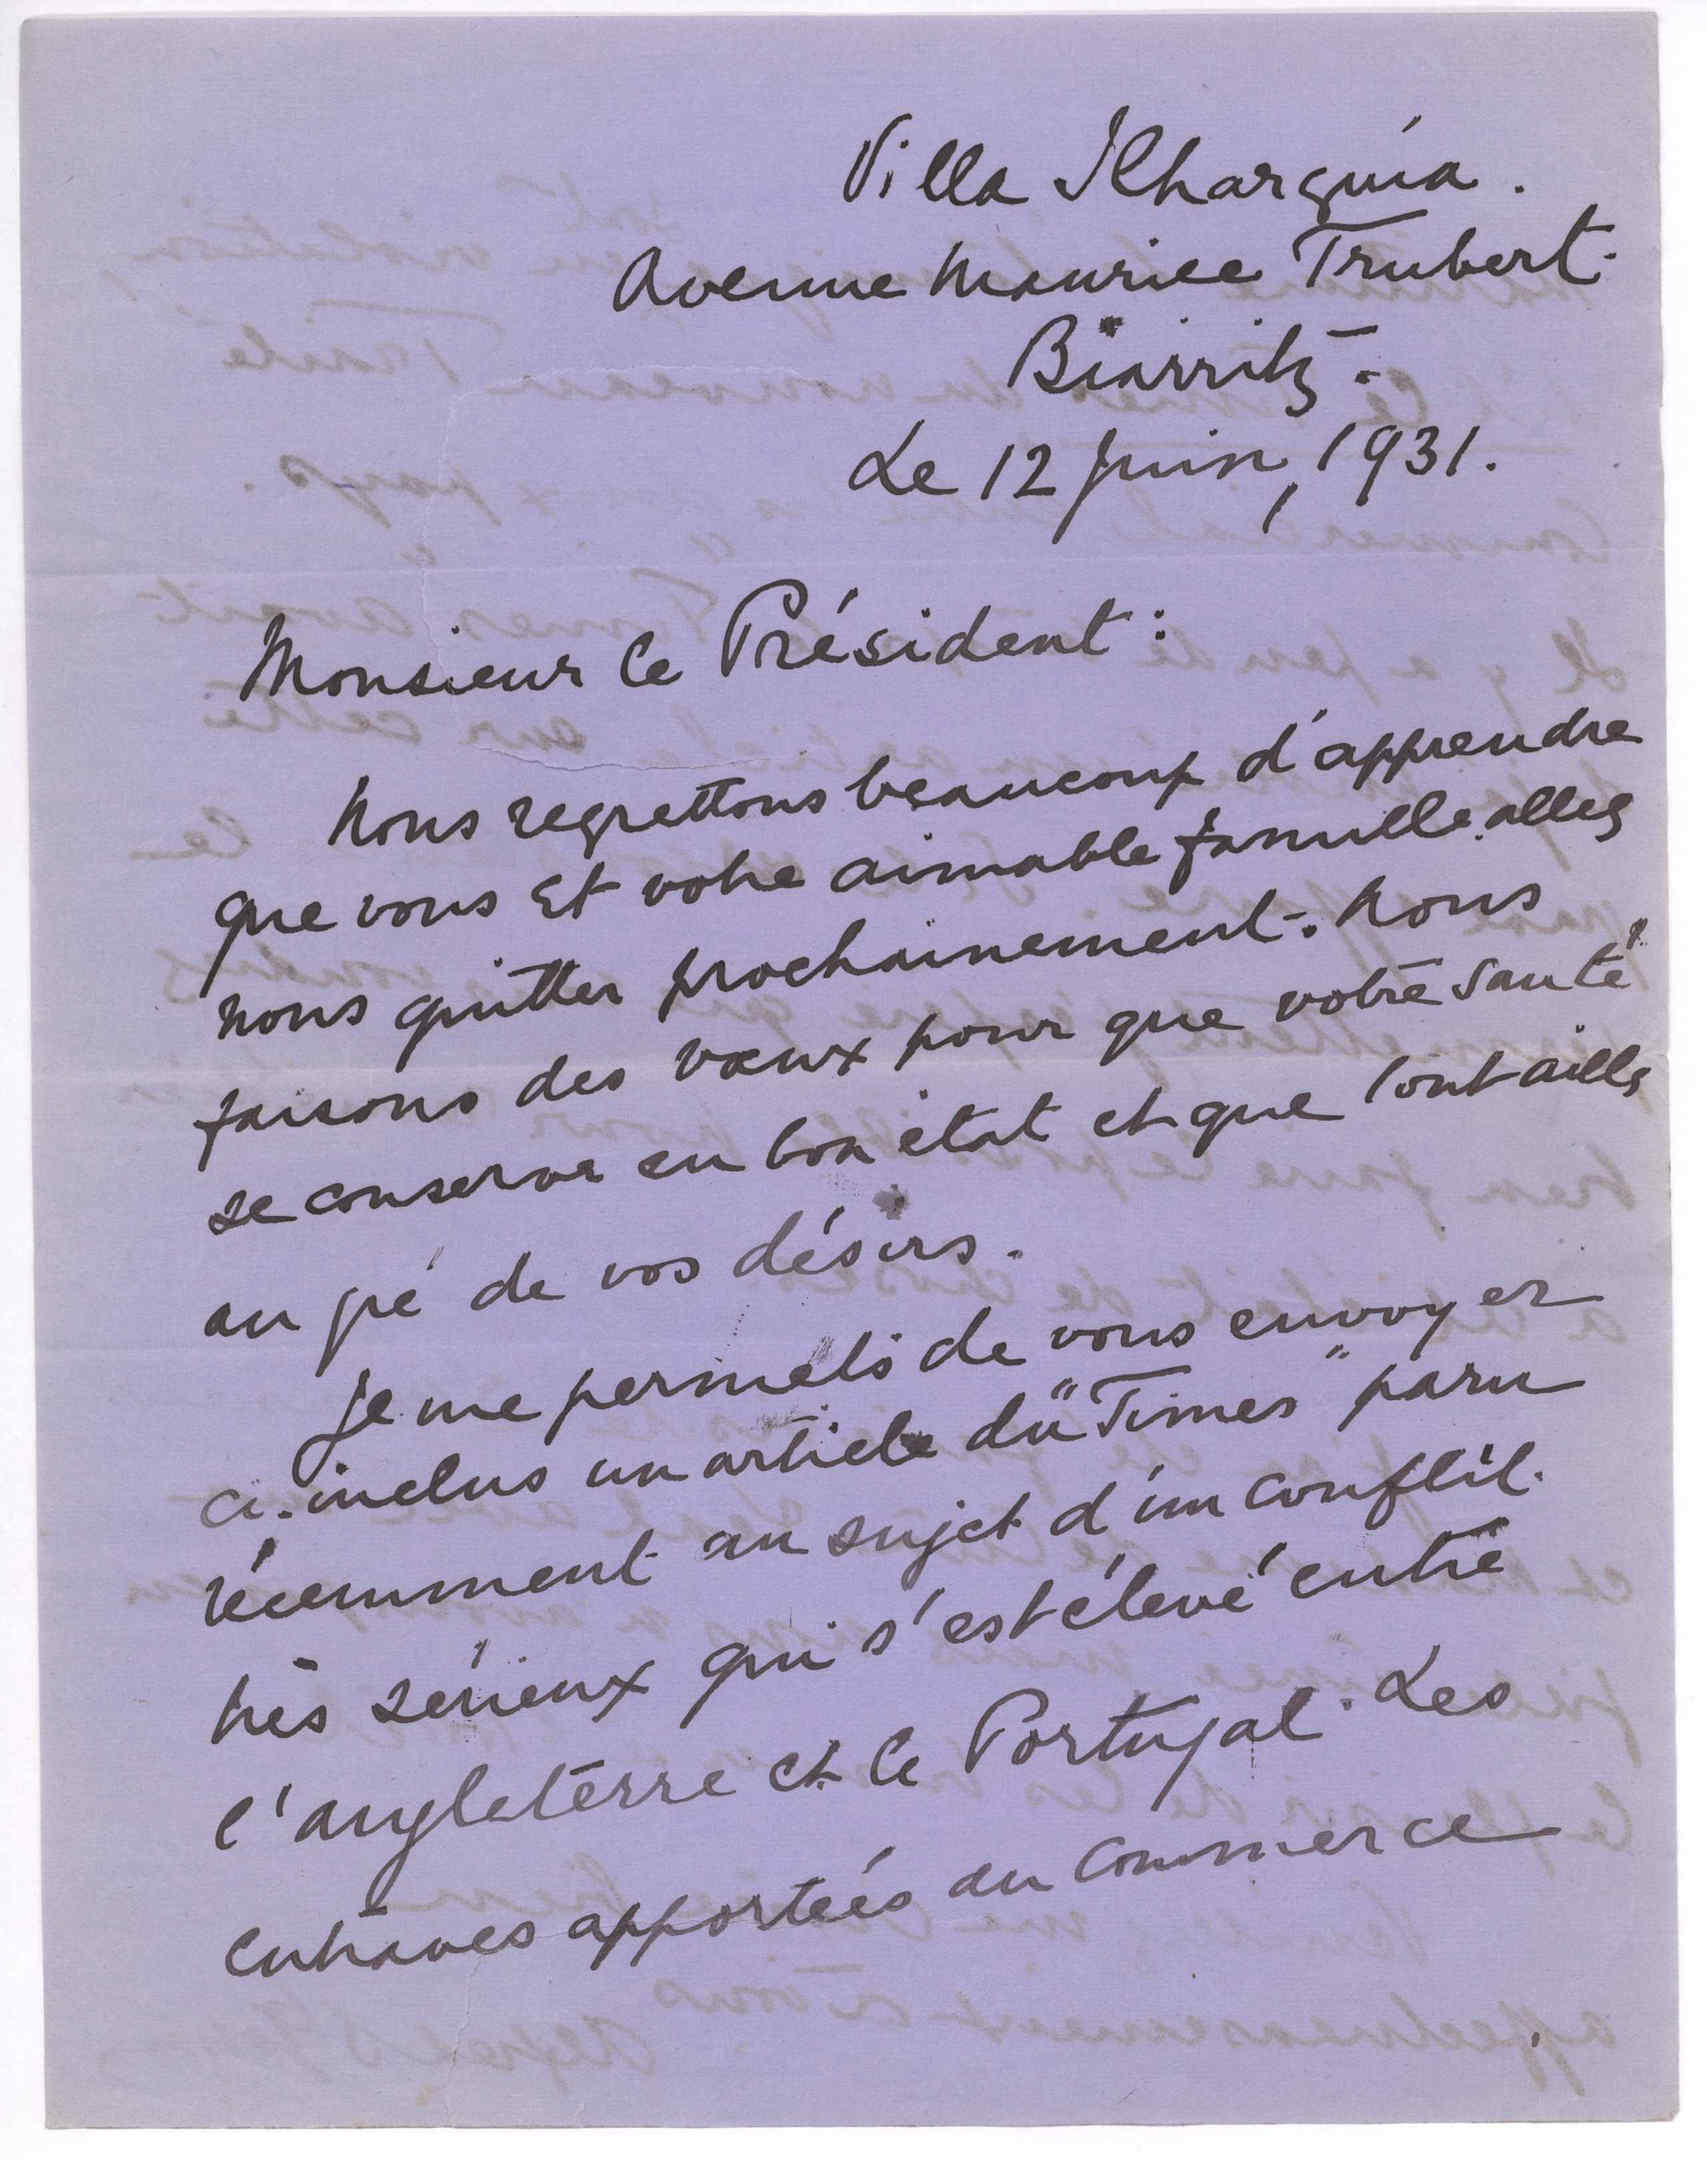 Villa Ilharguia.
Avenue Maurice Trubert.
Biarritz.
Le 12 juin, 1931.
Monsieur le Président:
Nous regrettons beaucoup d'apprendre
que vous et votre aimable famille allez
nous quitter prochainement. Nous
faisons des vœux pour que votre santé
se conserve en bon état et que tout aille
au gré de vos désirs.
Je me permets de vous envoyer
ci-inclus un article du "Times" paru
récemment au sujet d'un conflit
très sérieux qui s'est élevé entre
l'Angleterre et le Portugal. Les
entraves apportées au commerce